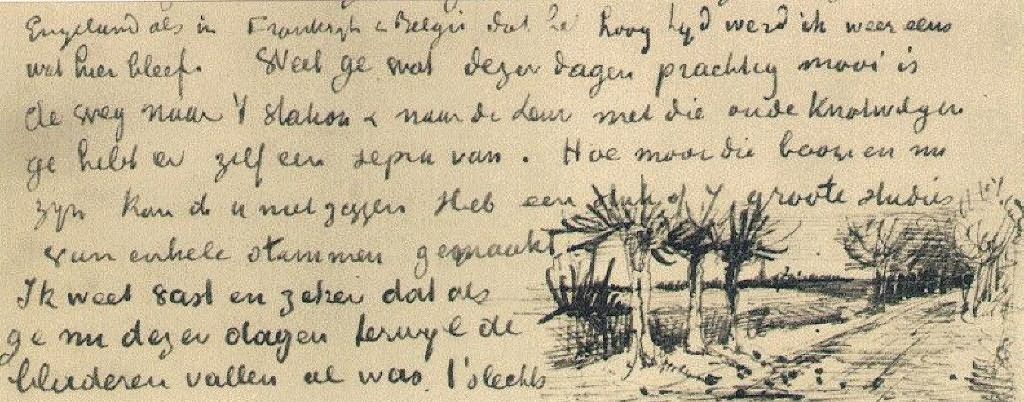 Engeland als in Frankrijk & België dat het hoog tyd werd ik weer eens
wat hier bleef. Weet ge wat dezer dagen prachtig mooi is
de weg naar 't station & naar de Leur met die oude knotwilgen
ge hebt er zelf een sepia van. Hoe mooi die boomen nu
zyn kan ik u niet zeggen Heb een stuk of 7 groote studies
van enkele stammen gemaakt
Ik weet vast en zeker dat als
ge nu dezer dagen terwyl de
bladeren vallen al was 't slechts